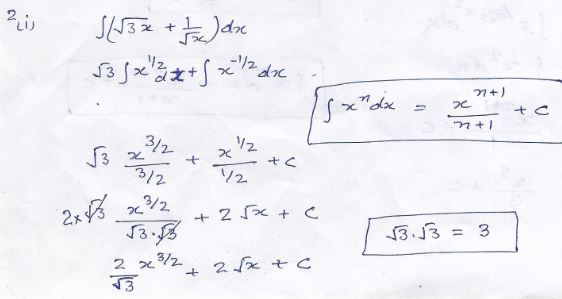 2(i) ∫(√3x + 1/√x)dx
√3 ∫x^1/2 dx + ∫x^-1/2 dx
∫x^n dx = x^n+1/n+1 + c
√3 x^3/2/3/2 + x^1/2/1/2 + c
2×√3 x^3/2/√3·√3 + 2√x + c
√3·√3 = 3
2/√3 x^3/2 + 2√x + c